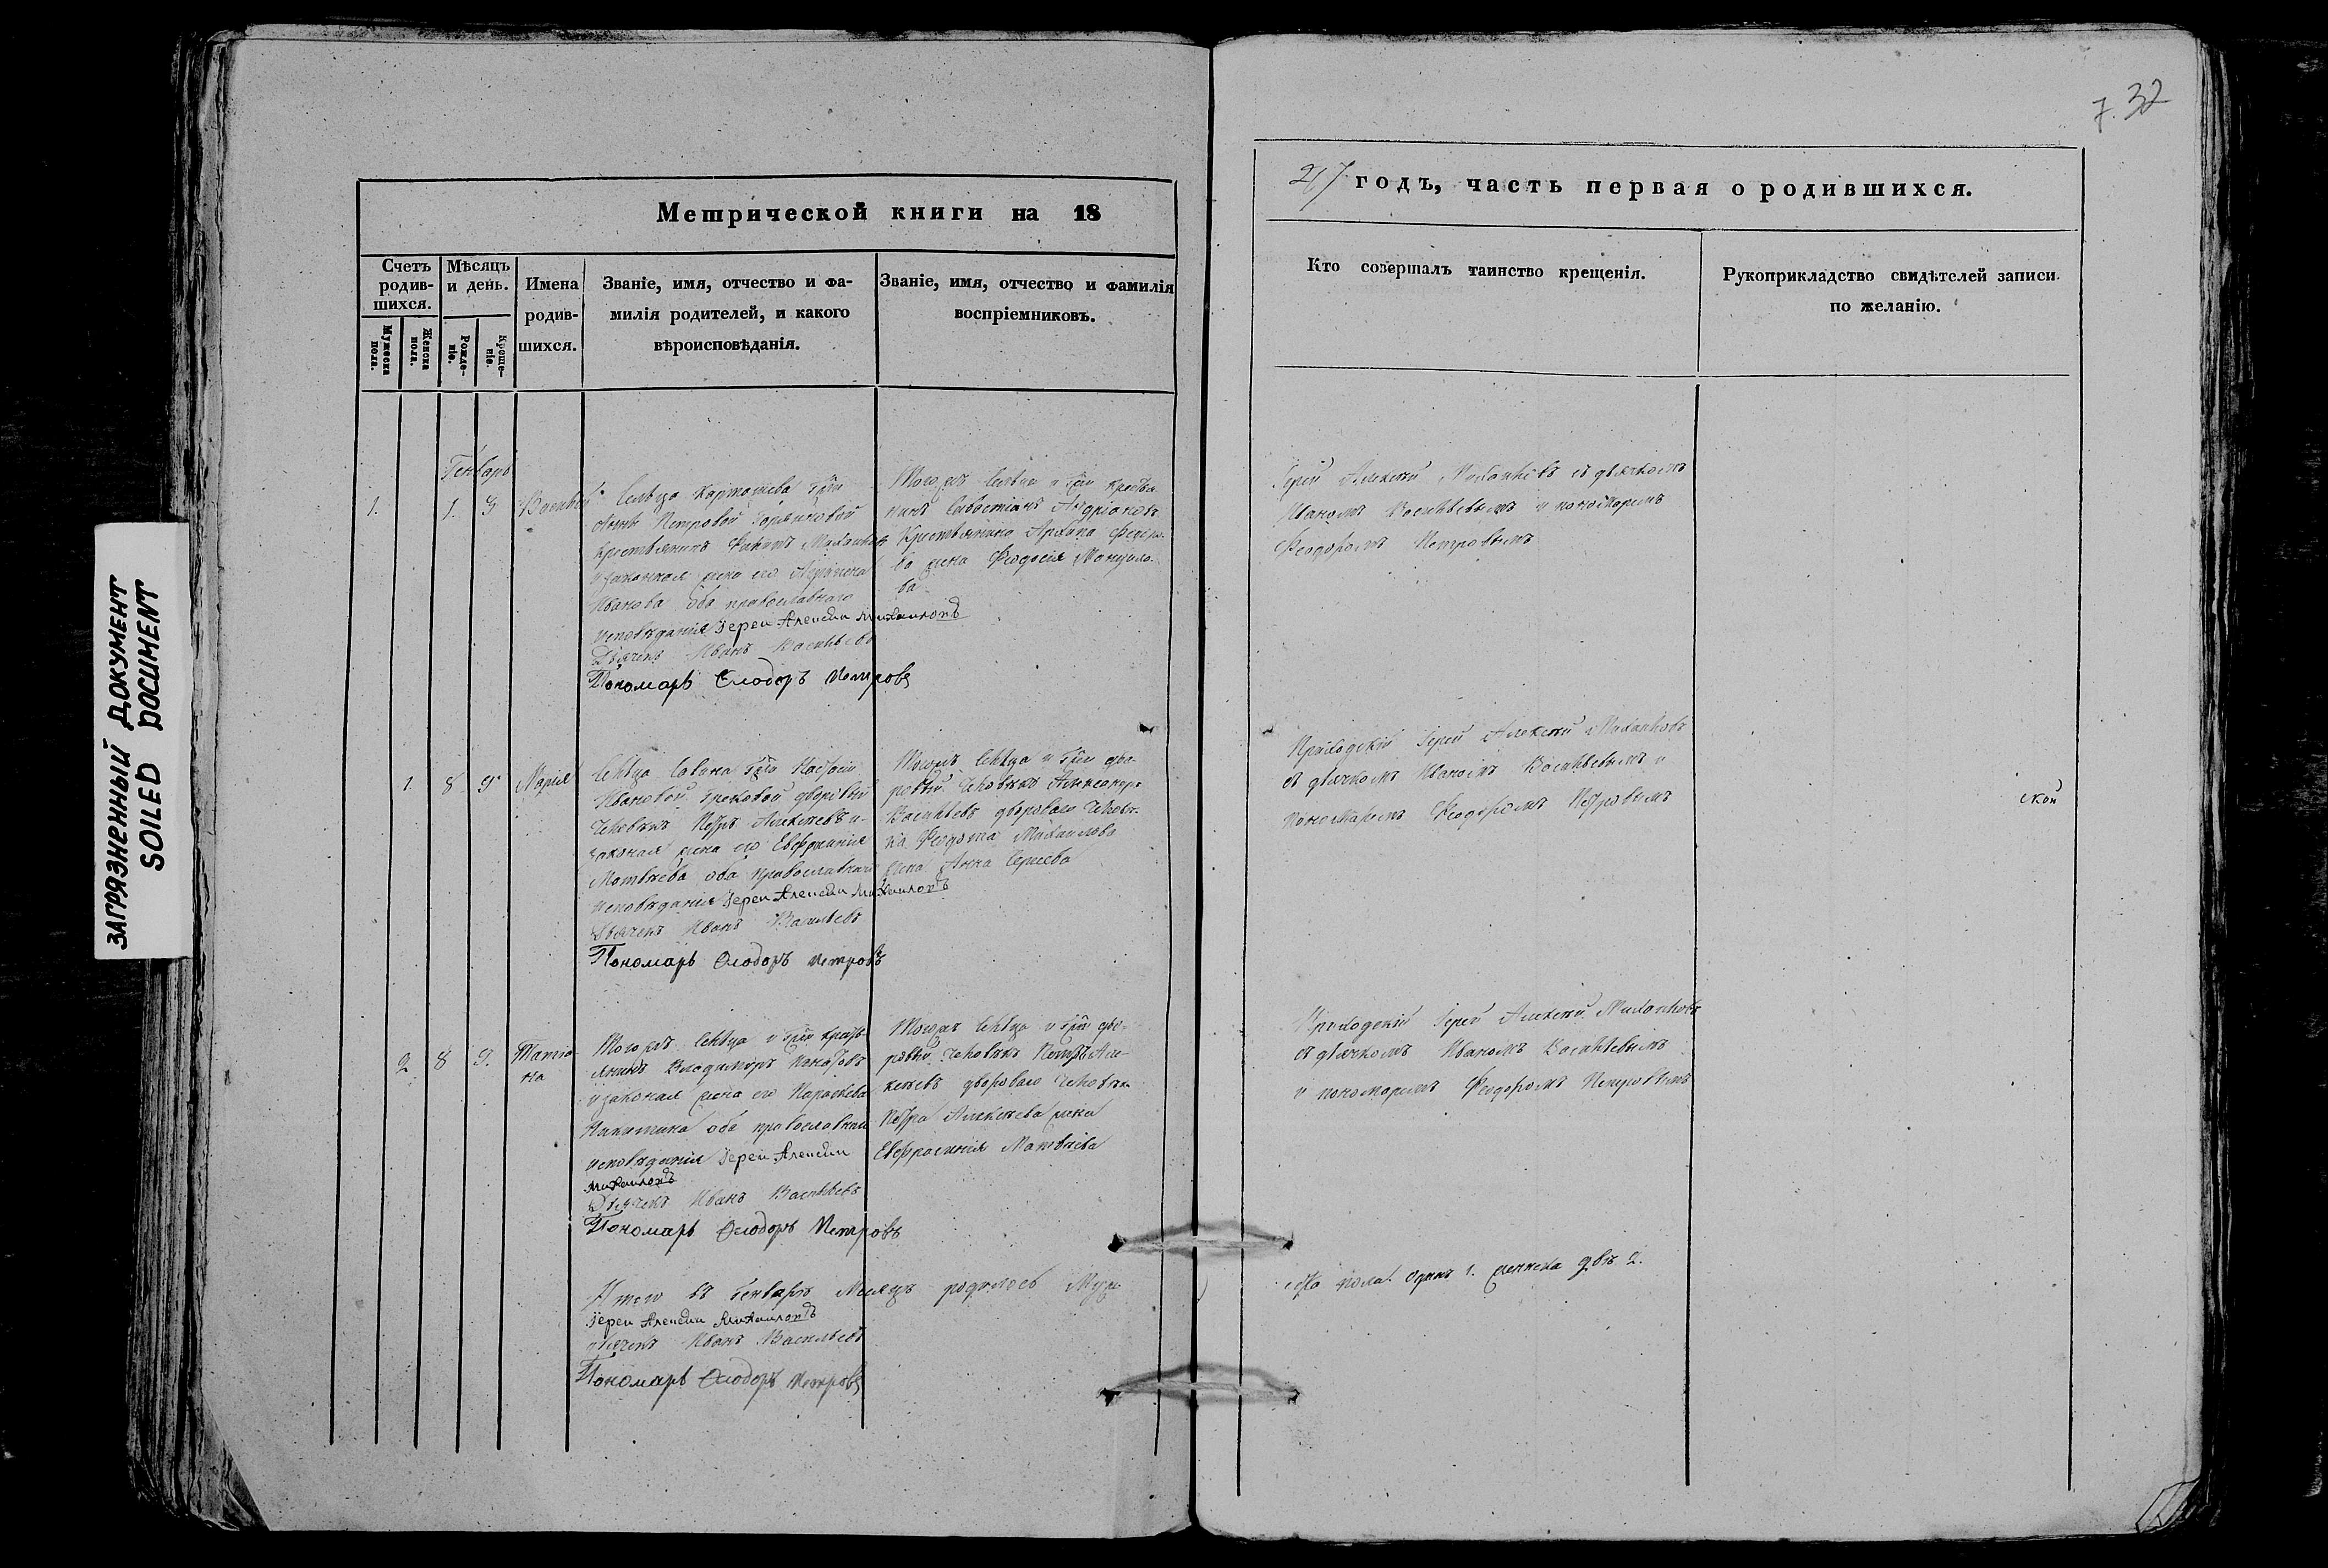 7. 32
ЗАГРЯЗНЕННЫЙ ДОКУМЕНТ
SOILED DOCUMENT
Метрической книги на 18
47 годъ, часть первая о родившихся.
Счетъ родив-шихся.
Мужеска пола.
Женска пола.
Мѣсяцъ и день.
Рожде-ніе.
Креще-ніе.
Имена родив-шихся.
Званіе, имя, отчество и фа-
милія родителей, и какого
вѣроисповѣданія.
Званіе, имя, отчество и фамилія
воспріемниковъ.
Кто совершалъ таинство крещенія.
Рукоприкладство свидѣтелей записи
по желанію.
Генварь
1. 1. 3 Василій
Сельца Карташева Гжи
Петровой
крестьянинъ
и законная жена его
Иванова оба православнаго
исповѣданія Іереи Алексiи Михаиловъ
Дьячекъ Иванъ Васильевъ
Пономарь Ѳеодоръ Петровъ
Тогожъ сельца и Гжи кресть-
нинъ Севастіанъ Андріановъ
крестьянина Архипа Федоро-
ва жена Феодосія
ва
Іерей Алексѣй Михайловъ съ дьячкомъ
Иваномъ Васильевымъ и пономаремъ
Феодоромъ Петровымъ
1 8 9 Марія
Сельца Гжи Настасіи
Ивановой дворовый
человѣкъ Петръ Алексѣевъ и
законная жена его Евфросинія
Матвѣева оба православнаго
исповѣданія Іереи Алексiи Михаиловъ
Дьячекъ Иванъ Васильевъ
Пономарь Ѳеодоръ Петровъ
Тогожъ сельца и Гжи дво-
ровый человѣкъ Александръ
Васильевъ двороваго человѣ-
ка Федота Михаилова
жена Анна Сергѣева
Приходскій Іерей Алексѣй Михайловъ
съ дьячкомъ Иваномъ Васильевымъ и
пономаремъ Феодоромъ Петровымъ
ской
2 8 9. Татіа-
на
Тогожъ сельца и Гжи кресть-
янинъ Владимиръ
и законная жена его Параскева
Никитина оба православнаго
исповѣданія Іереи Алексiи
Михаиловъ
Дьячекъ Иванъ Васильевъ
Пономарь Ѳеодоръ Петровъ
Тогожъ сельца и Гжи дво-
ровый человѣкъ Петръ Але-
ксѣевъ двороваго человѣка
Петра Алексѣева жена
Евфросинія Матвѣева
Приходскій Іерей Алексѣй Михайловъ
съ дьячкомъ Иваномъ Васильевымъ
и пономаремъ Феодоромъ Петровымъ
Итого въ Генварѣ Месяцѣ родилось Муже
ска пола одинъ 1. женска двѣ 2.
Іереи Алексiи Михаиловъ
дьячекъ Иванъ Васильевъ
Пономарь Ѳеодоръ Петровъ